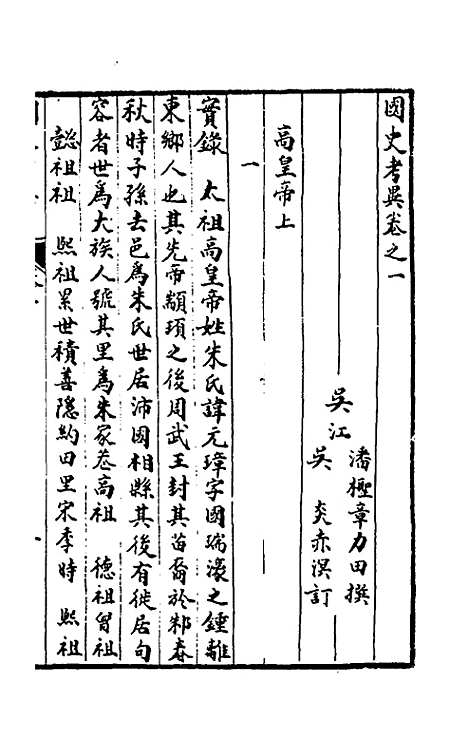 國史考異卷之一
吳江
潘檉章力田撰
吳　炎赤溟訂
高皇帝上
一
實錄　太祖高皇帝姓朱氏諱元璋字國瑞濠之鍾離
東鄉人也其先帝顓頊之後周武王封其苗裔於邾春
秋時子孫去邑爲朱氏世居沛國相縣其後有徙居句
容者世爲大族人號其里爲朱家巷高祖　德祖曾祖
懿祖祖　熙祖累世積善隱約田里宋季時　熙祖